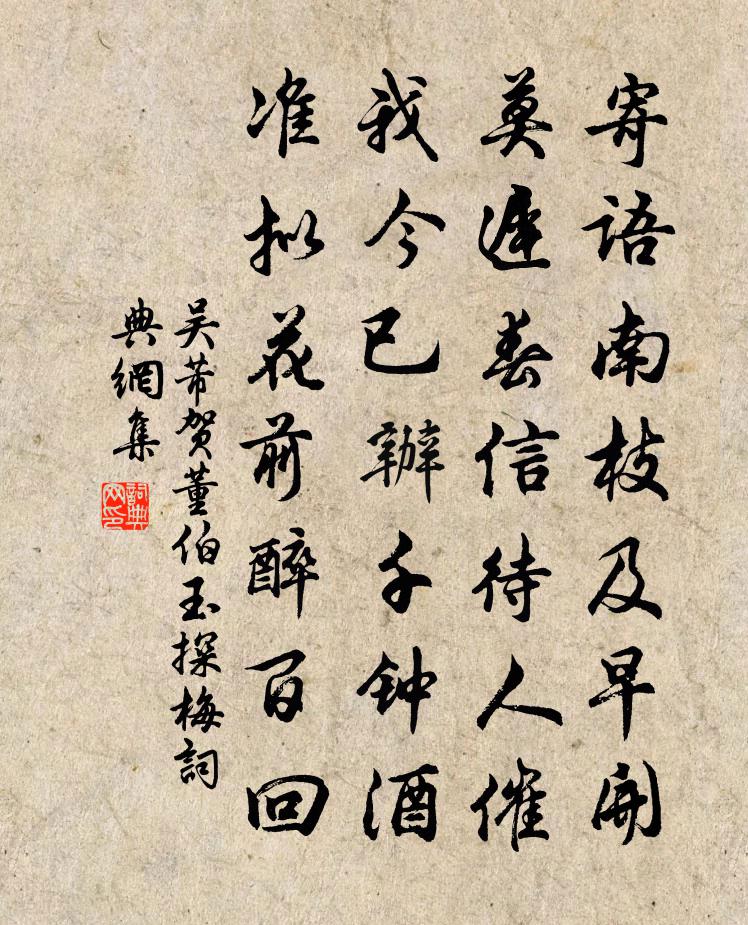 寄語南枝及早開
莫遲春信待人催
我今已辦千钟酒
准拟花前醉百回
吴芾贺董伯玉探梅詞
典網集
詞典
网印